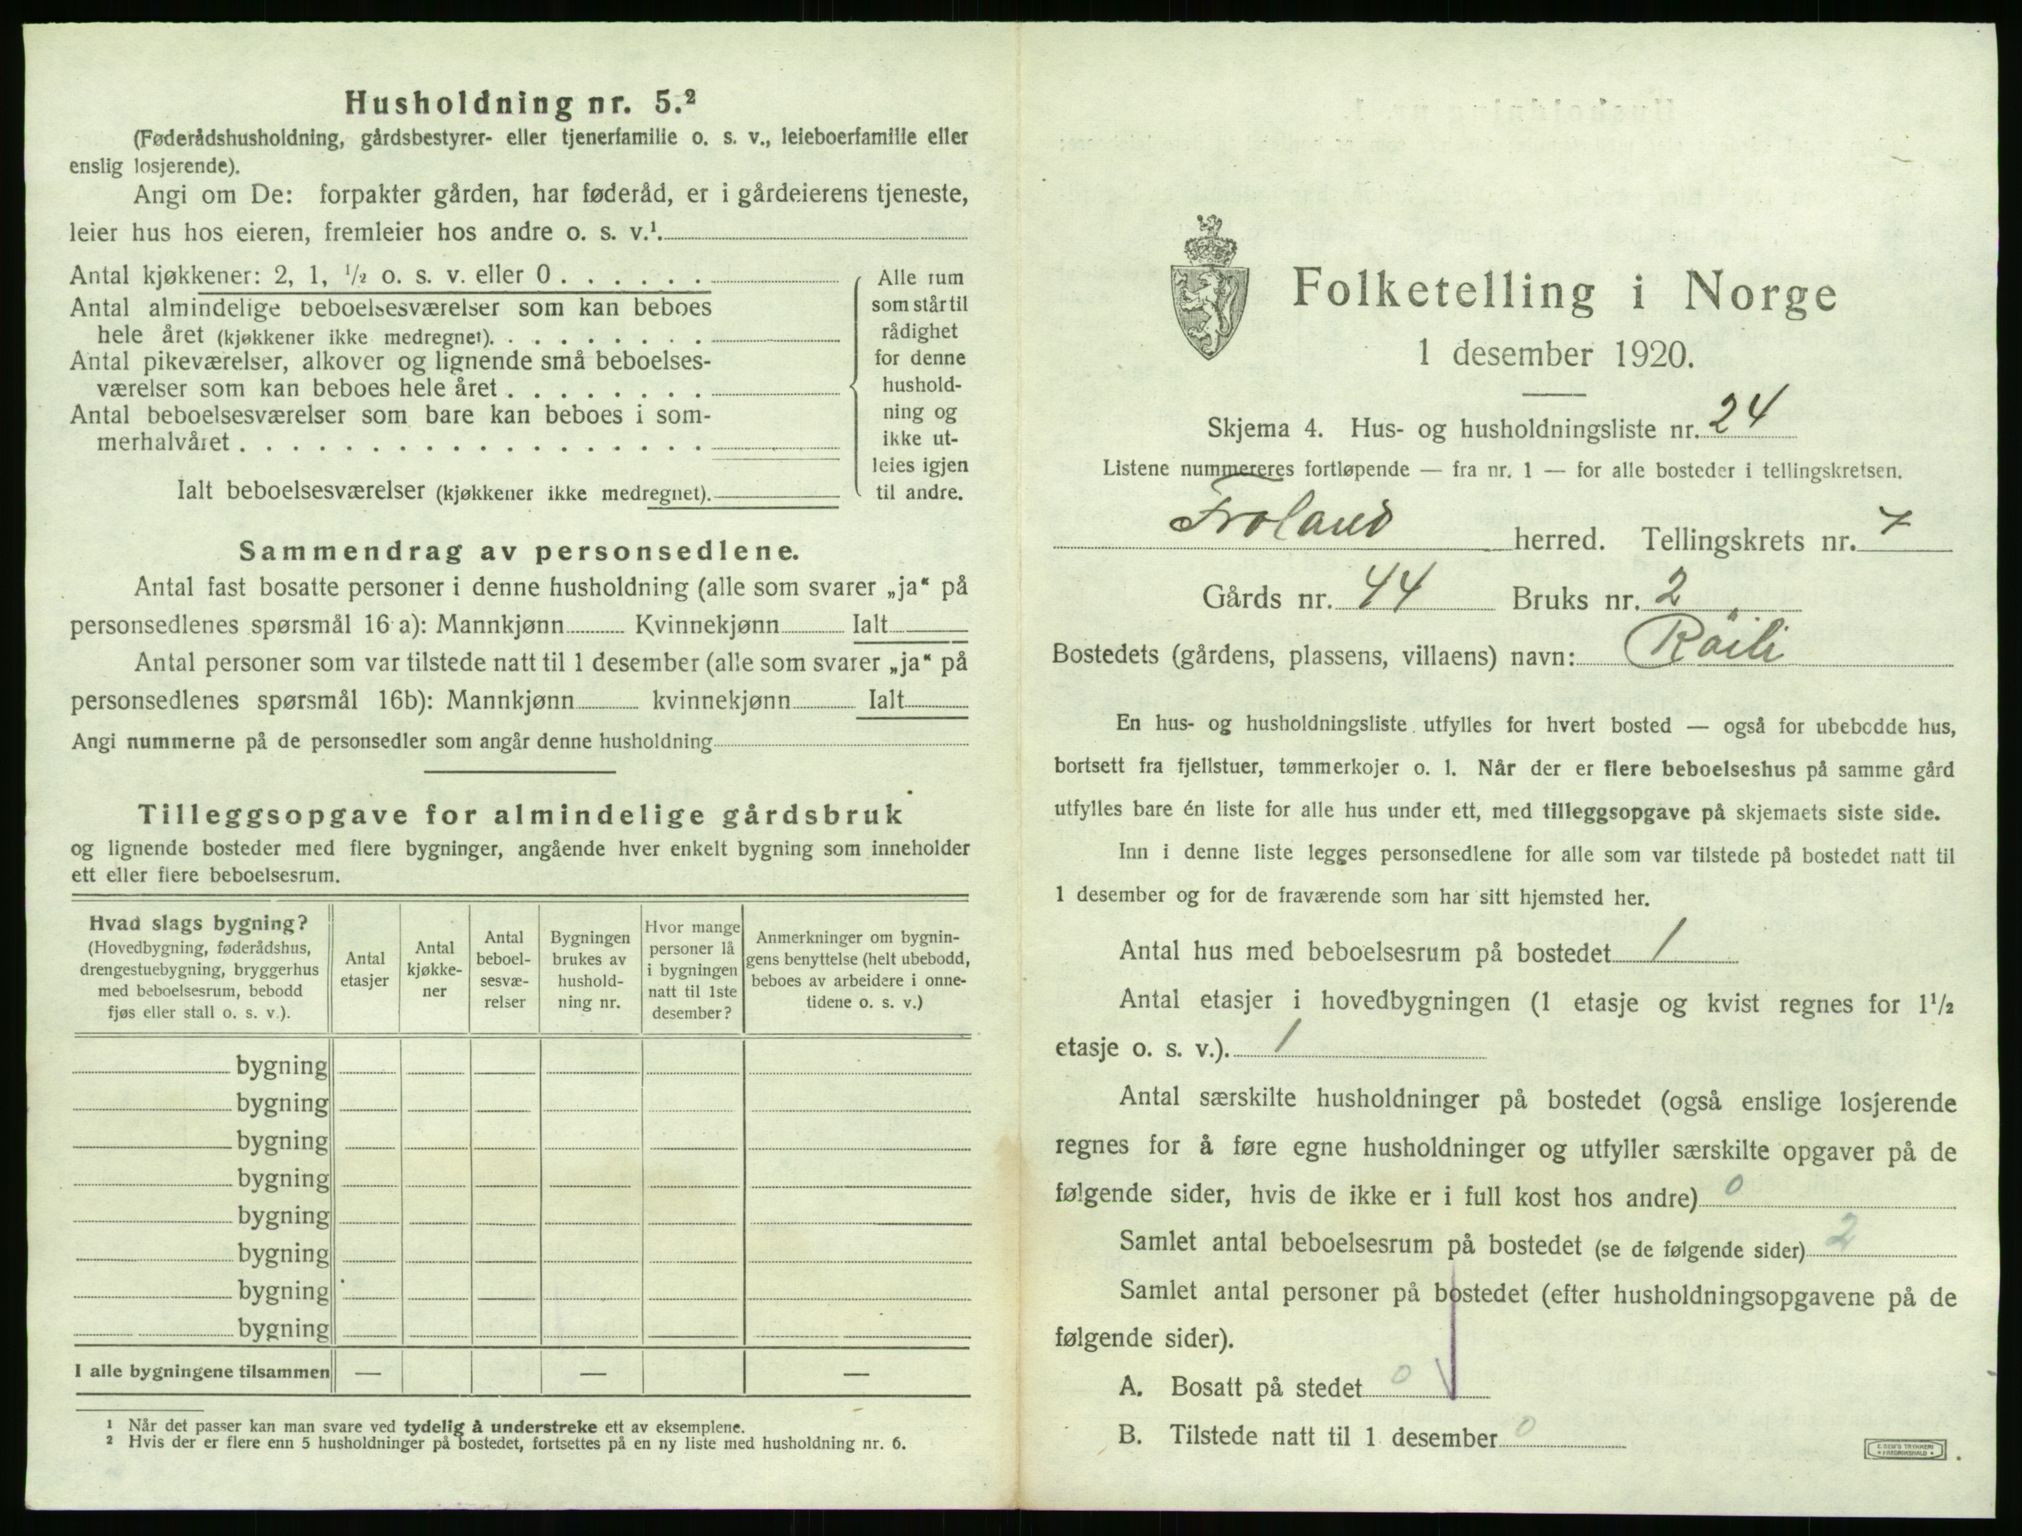 Husholdning nr. 5.²
(Føderådshusholdning, gårdsbestyrer- eller tjenerfamilie o. s. v., leieboerfamilie eller
enslig losjerende).
Angi om De: forpakter gården, har føderåd, er i gårdeierens tjeneste,
leier hus hos eieren, fremleier hos andre o. s. v.¹.
Antal kjøkkener: 2, 1, ½ o. s. v. eller 0 . . . . . .
Antal almindelige beboelsesværelser som kan beboes
hele året (kjøkkener ikke medregnet). . . . . . . . .
Antal pikeværelser, alkover og lignende små beboelses-
værelser som kan beboes hele året . . . . . . . .
Antal beboelsesværelser som bare kan beboes i som-
merhalvåret . . . . . . . . . . . . . . . . . .
Ialt beboelsesværelser (kjøkkener ikke medregnet).
Alle rum
som står til
rådighet
for denne
hushold-
ning og
ikke ut-
leies igjen
til andre.
Sammendrag av personsedlene.
Antal fast bosatte personer i denne husholdning (alle som svarer „ja“ på
personsedlenes spørsmål 16 a): Mannkjønn Kvinnekjønn Ialt
Antal personer som var tilstede natt til 1 desember (alle som svarer „ja“ på
personsedlenes spørsmål 16b): Mannkjønn kvinnekjønn Ialt
Angi nummerne på de personsedler som angår denne husholdning
Tilleggsopgave for almindelige gårdsbruk
og lignende bosteder med flere bygninger, angående hver enkelt bygning som inneholder
ett eller flere beboelsesrum.
Hvad slags bygning?
(Hovedbygning, føderådshus,
drengestuebygning, bryggerhus
med beboelsesrum, bebodd
fjøs eller stall o. s. v.).
Antal
etasjer
Antal
kjøkke-
ner
Antal
beboel-
sesvæ-
relser
Bygningen
brukes av
hushold-
ning nr.
Hvor mange
personer lå
i bygningen
natt til 1ste
desember?
Anmerkninger om bygnin-
gens benyttelse (helt ubebodd,
beboes av arbeidere i onne-
tidene o. s. v.)
bygning
bygning
bygning
bygning
bygning
bygning
bygning
bygning
I alle bygningene tilsammen — — —
¹ Når det passer kan man svare ved tydelig å understreke ett av eksemplene.
² Hvis der er flere enn 5 husholdninger på bostedet, fortsettes på en ny liste med husholdning nr. 6.
Folketelling i Norge
1 desember 1920.
Skjema 4. Hus- og husholdningsliste nr. 24
Listene nummereres fortløpende — fra nr. 1 — for alle bosteder i tellingskretsen.
Froland herred. Tellingskrets nr. 7
Gårds nr. 44 Bruks nr. 2
Bostedets (gårdens, plassens, villaens) navn: Röili
En hus- og husholdningsliste utfylles for hvert bosted — også for ubebodde hus,
bortsett fra fjellstuer, tømmerkojer o. l. Når der er flere beboelseshus på samme gård
utfylles bare én liste for alle hus under ett, med tilleggsopgave på skjemaets siste side.
Inn i denne liste legges personsedlene for alle som var tilstede på bostedet natt til
1 desember og for de fraværende som har sitt hjemsted her.
Antal hus med beboelsesrum på bostedet 1
Antal etasjer i hovedbygningen (1 etasje og kvist regnes for 1½
etasje o. s. v.). 1
Antal særskilte husholdninger på bostedet (også enslige losjerende
regnes for å føre egne husholdninger og utfyller særskilte opgaver på de
følgende sider, hvis de ikke er i full kost hos andre) 0
Samlet antal beboelsesrum på bostedet (se de følgende sider) 2
Samlet antal personer på bostedet (efter husholdningsopgavene på de
følgende sider).
A. Bosatt på stedet 0
B. Tilstede natt til 1 desember 0